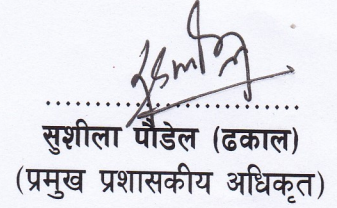 सुशीला पौडेल (ढकाल)
(प्रमुख प्रशासकीय अधिकृत)